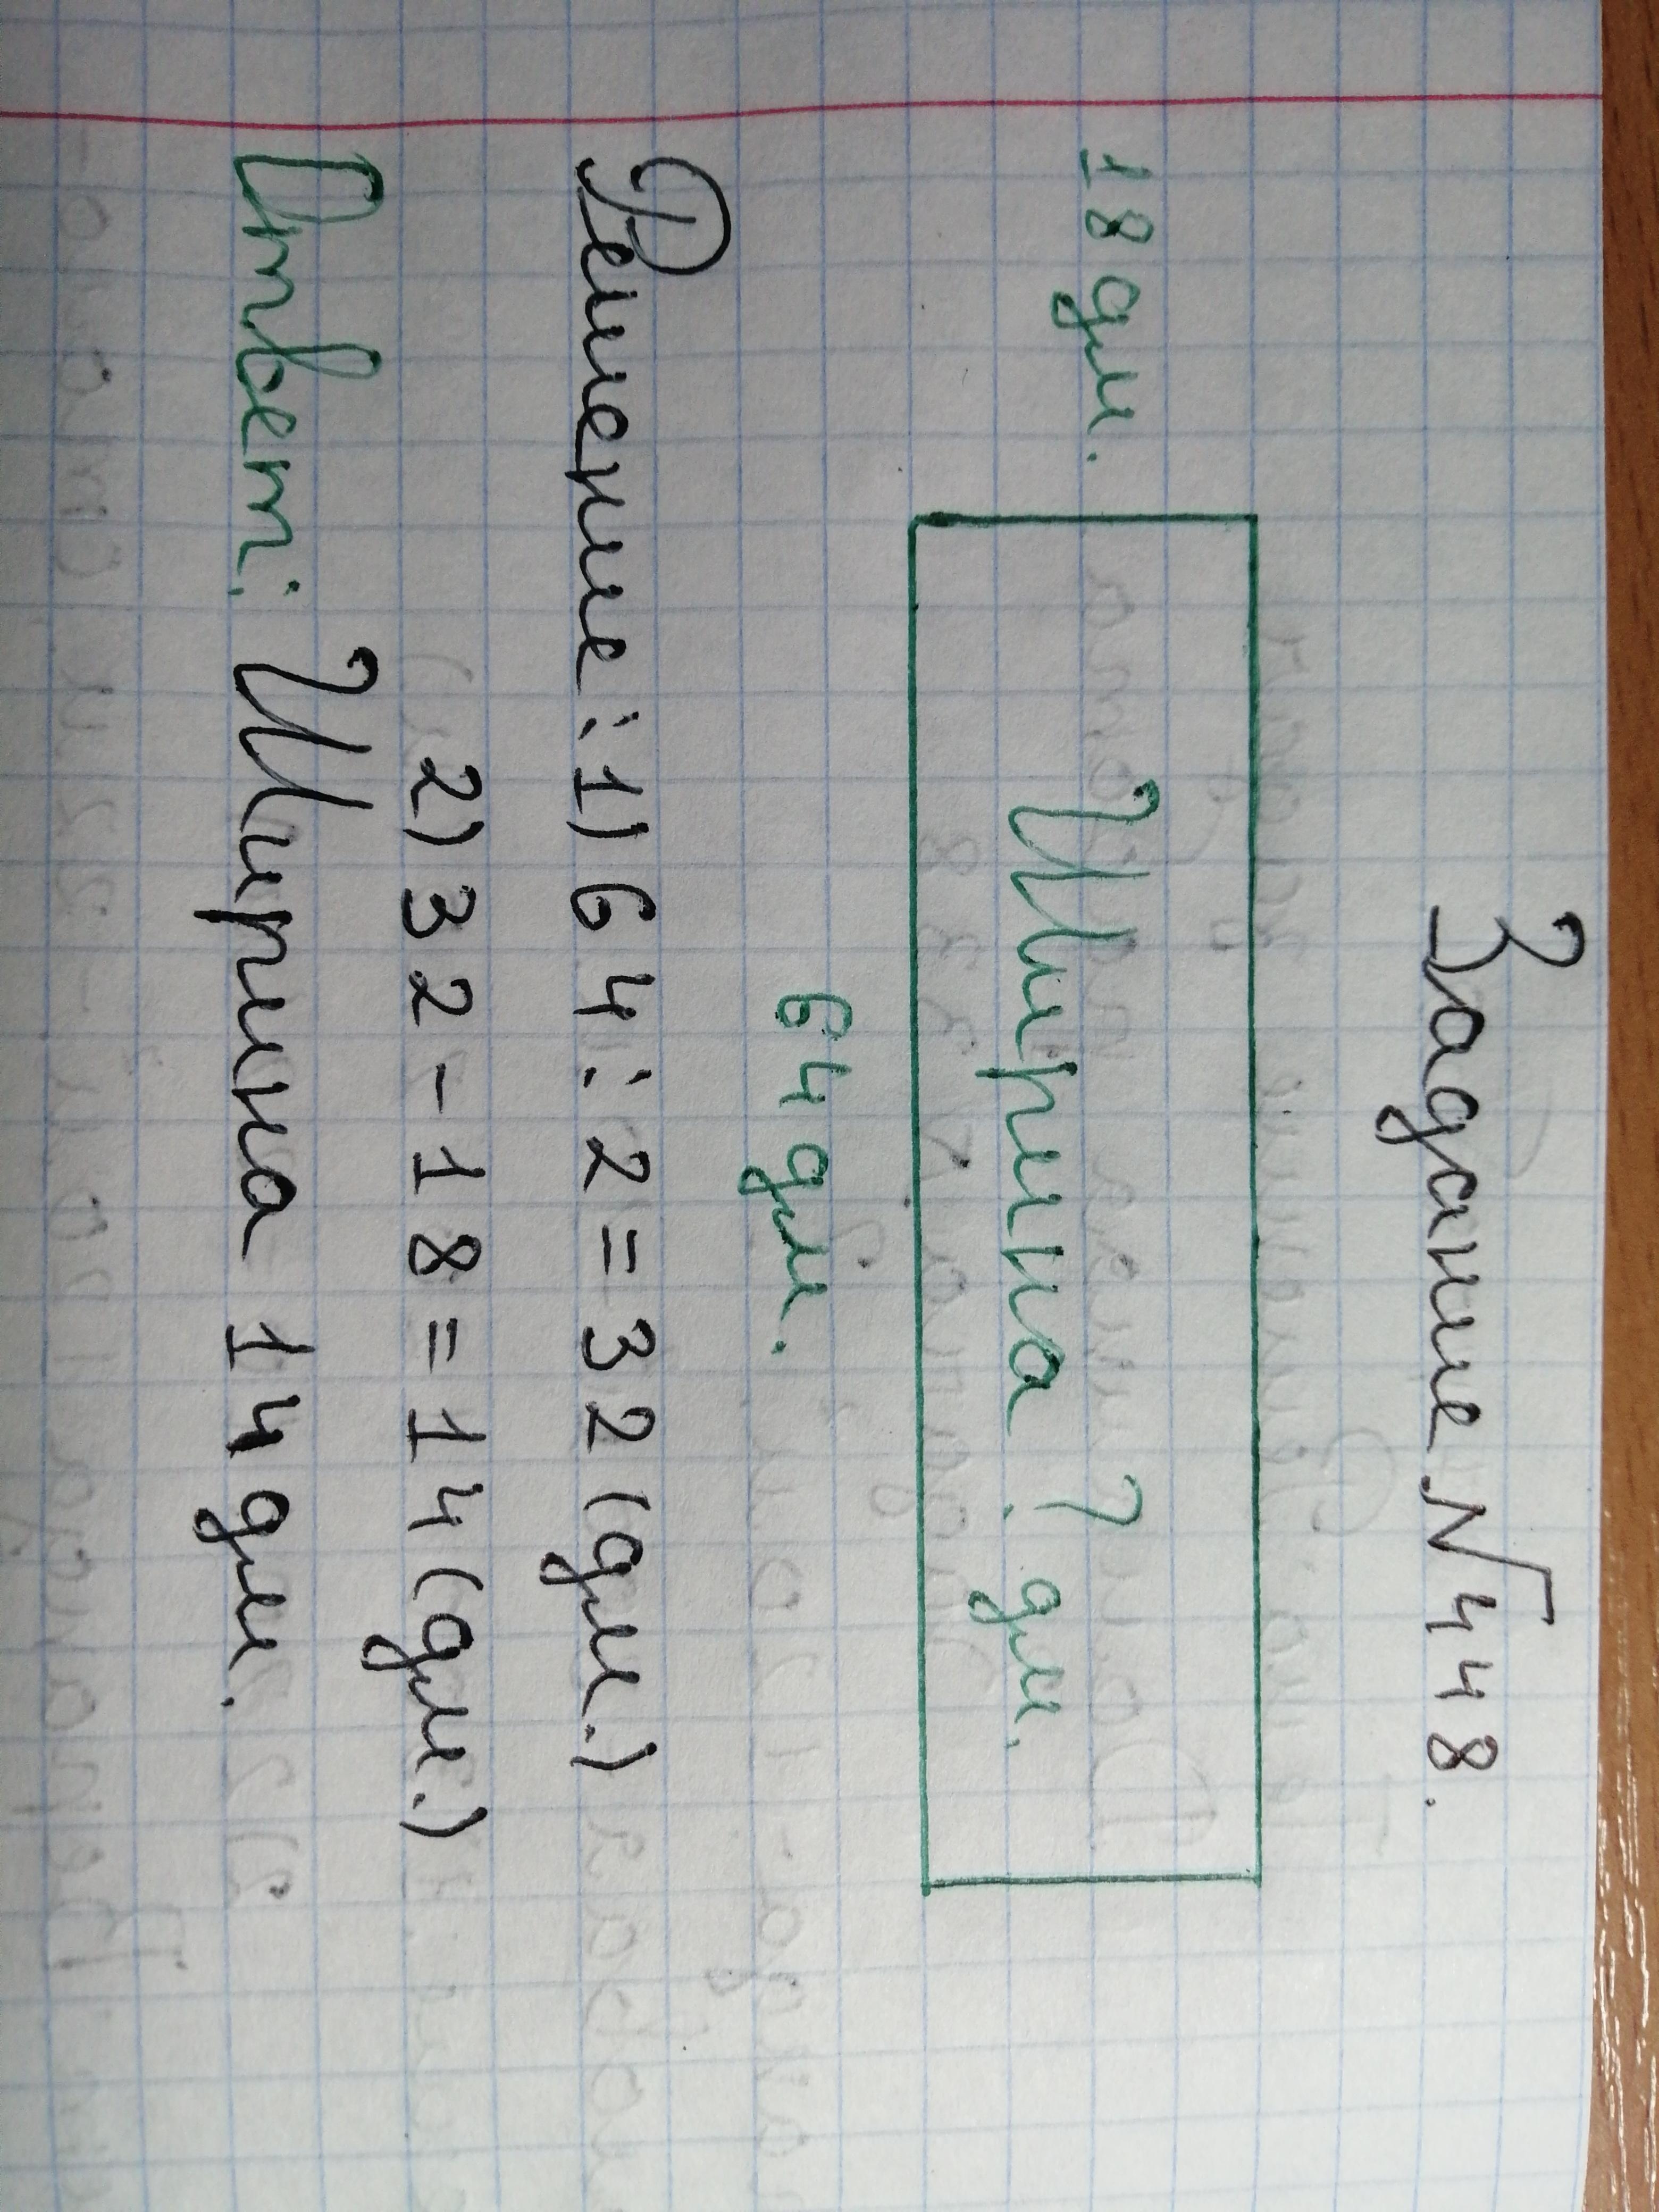 Задание №448.
18 дм.
Ширина ? дм.
64 дм.
Решение: 1) 64 : 2 = 32 (дм.)
2) 32 - 18 = 14 (дм.)
Ответ: Ширина 14 дм.